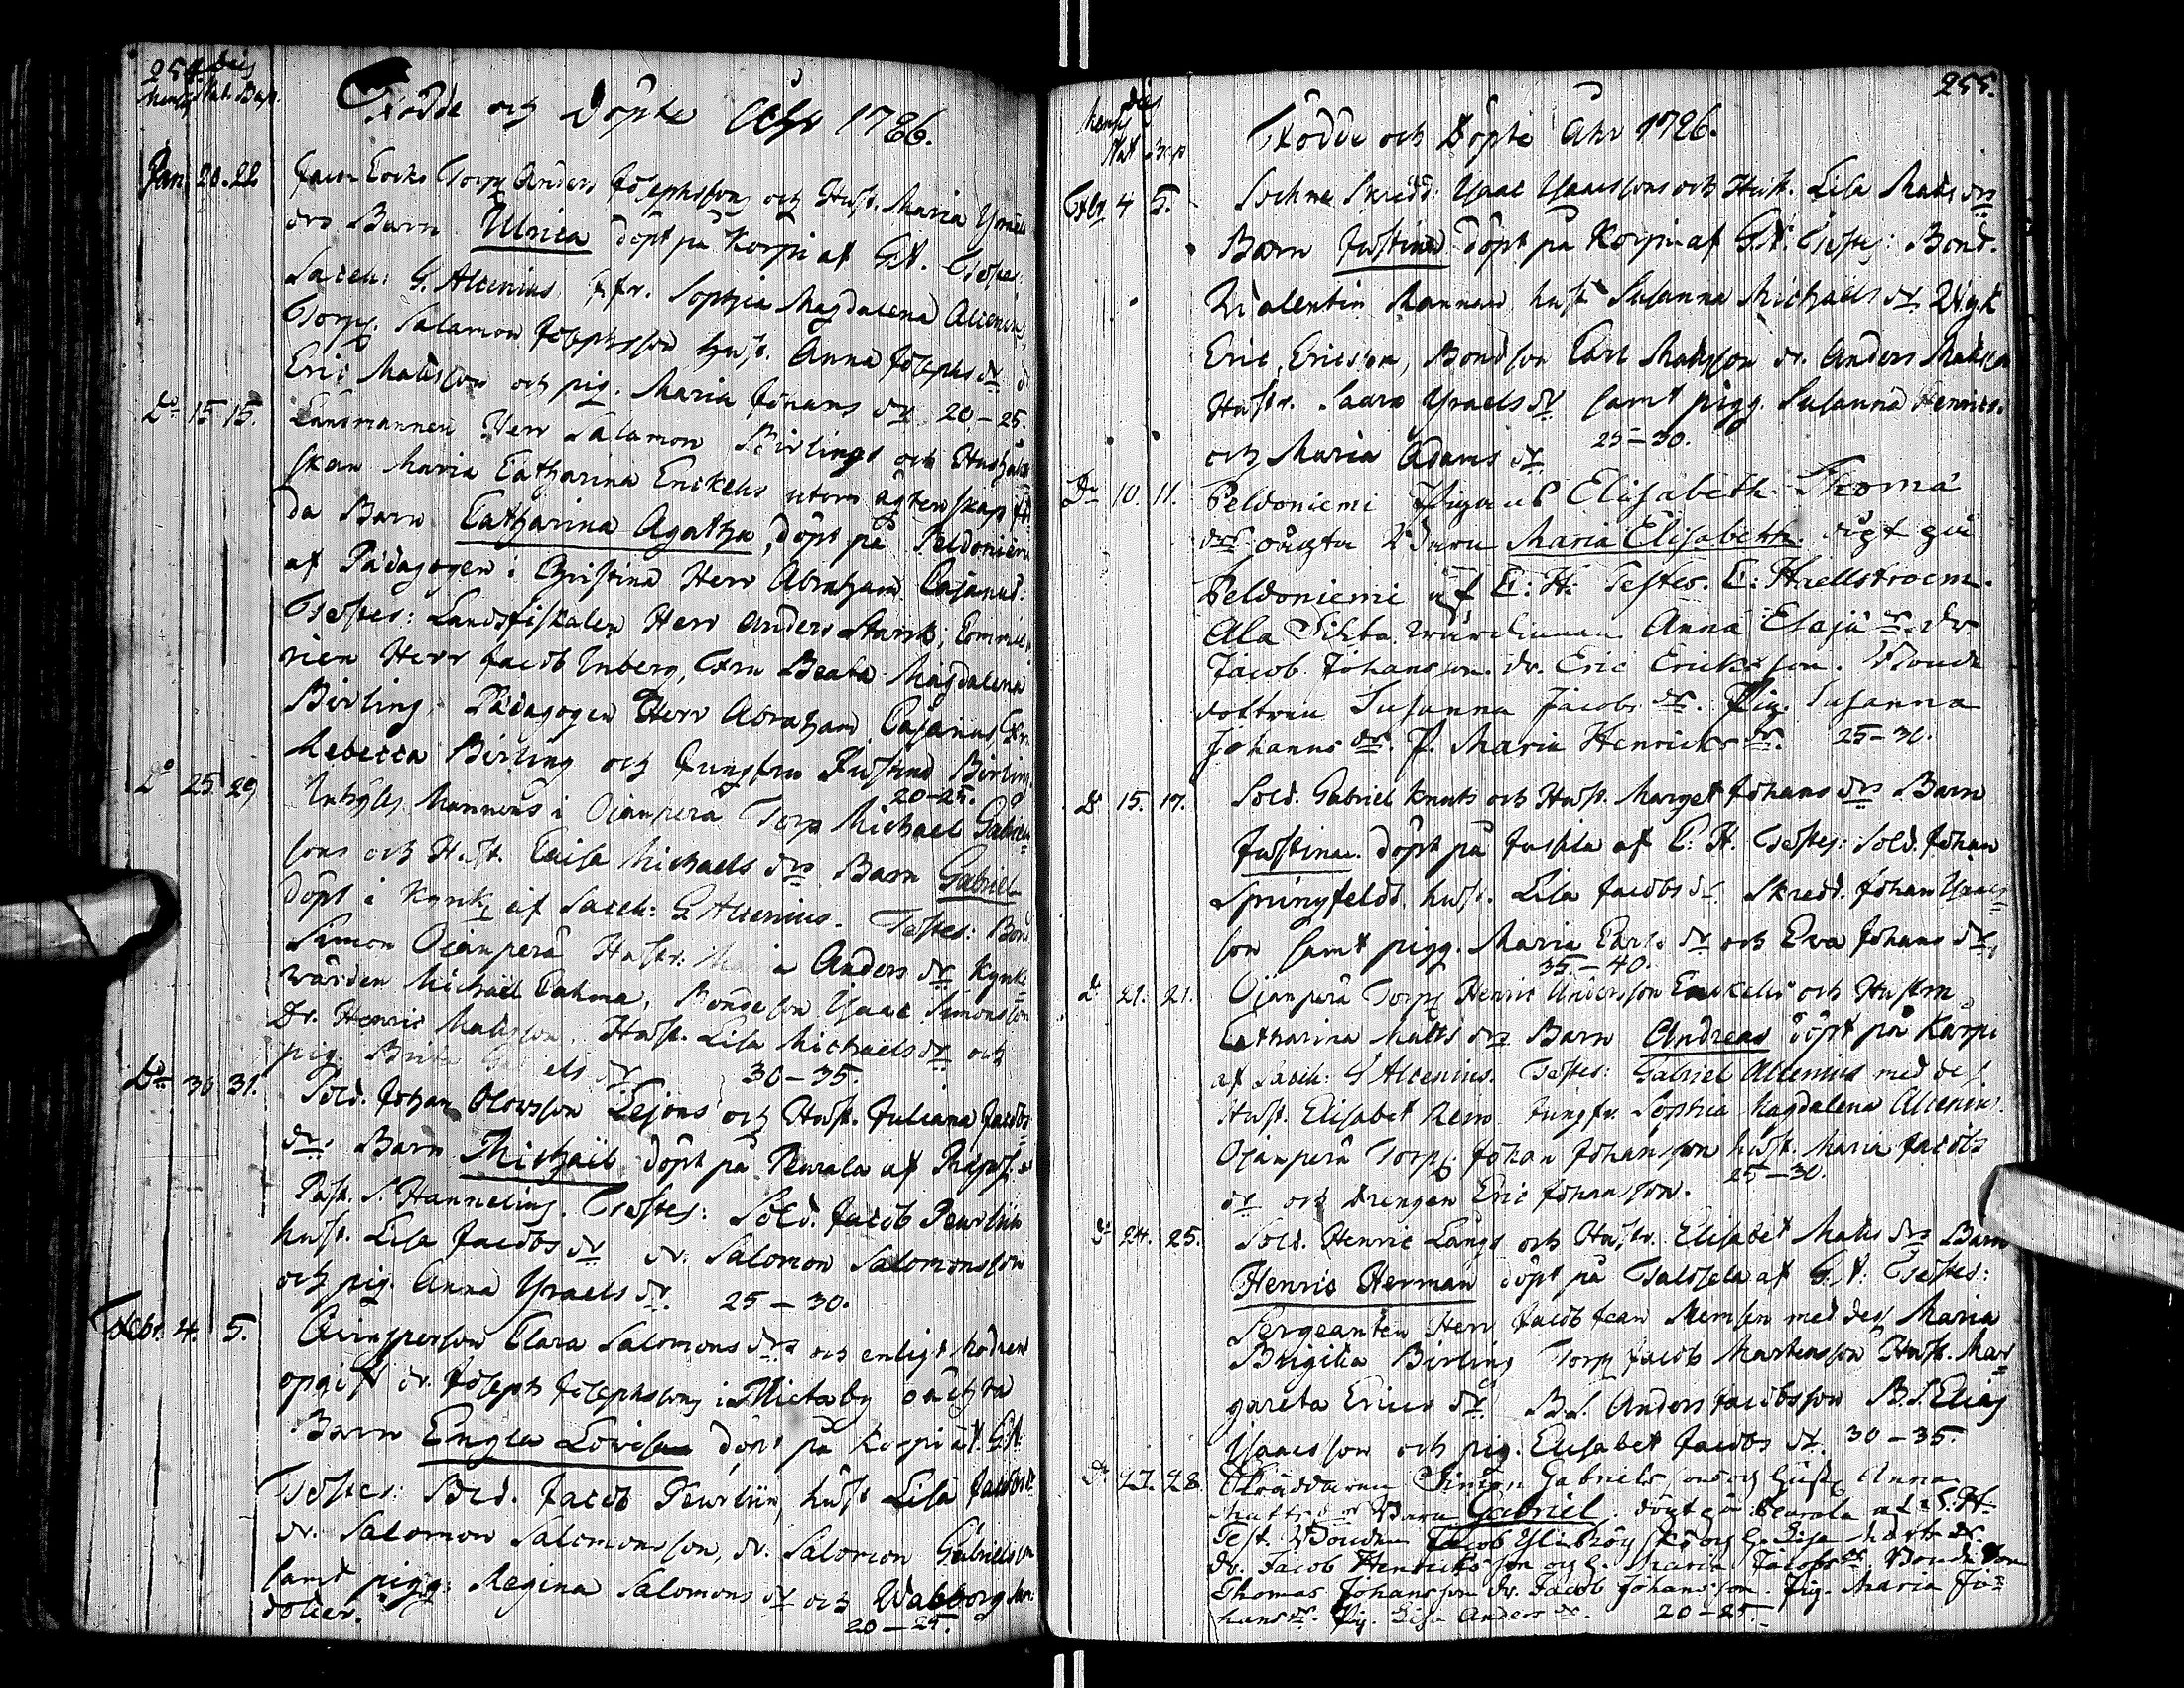 254
dies
Mens Nat. Bap.
Födde och Döpte Åhr 1786.
Jan. 20. 22 Torp. Anders Josephssons och Hust. Maria
drs Barn Ulrica döpt på Korpi af G.A. Testes
Sacell: G. Alcenius Jfr. Sophia Magdalena Alcenius
Torp. Salamon Josephsson hust. Anna Josephs dr
Eric Matsson och pig. Maria Johans dr 20-25.
Do 15 15. Länsmannen Herr Salamon Birlings och Hushåll
skan Maria Catharina Enckells utom ägtenskap
da Barn Catharina Agatha, döpt på Peldoniemi
af Pädagogen i Christina Herr Abraham Cajanus.
Testes: Landsfiskalen Herr Anders Stark;
Herr Jacob Enberg, Fru Beata Magdalena
Birling, Pädagogen Herr Abraham Cajanus, Fr.
Rebecca Birling och Jungfru Justina Birling
20-25.
Do 25 29 Inhyses Mannens i Ojanperä Torp Michael Gabriel
sons och Hust. Caisa Michaels drs Barn Gabriel
döpt i Kyrk. af Sacell: G Alcenius. Testes: Bond
Simon Ojanperä Hustr. Maria Anders dr Kyrk
wärden Michaël Bondeson Isaac Simonsson
Dr. Henric Matsson, Hust. Lisa Michaels dr och
pig. Brita dr 30-35.
Do 30 31. Sold. Johan Olofsson Lejons och Hust. Juliana Jacobs
drs Barn Michaël döpt på Peurala af
Past. S. Hanneling. Testes: Sold. Jacob
hust. Lisa Jacobs dr dr. Salomon Salomonsson
och pig. Anna Ysraels dr. 25-30.
Febr. 4. 5. Qvinsperson Clara Salomons drs och enligt Modren
opgift dr. Joseph Josephssons i Mietaby oäckta
Barn Engla Lovisa döpt på Korpi af G.A.
Testes: Sold. Jacob hust Lisa Jacobs dr
dr. Salomon Salomonsson, dr. Salomon Gabrielsson
samt pigg: Regina Salomons dr och Walborg
dotter. 20-25.
255.
dies
Mens
Nat Bap
Födde och Döpte Åhr 1786.
Febr 4 5. Sockne Skredd: Isaac Isacssons och Hust. Lisa Mats drs
Barn Justina döpt på Korpi af G.A. Testes: Bond.
Walentin hust Susanna Michaels dr
Eric Ericsson, Bondson Carl Matsson dr. Anders Matsson
Hustr. Saara Ysraels dr samt pigg. Susanna Henrics
och Maria Adams dr 25-30.
Do 10. 11. Peldoniemi Pigan Elisabeth Thomä
drs oäckta Barn Maria Elisabeth döpt på
Peldoniemi af E: H. Testes. E: Haellstroem.
Ala Sihto Anna Esajä dr. dr.
Jacob Johansson. dr. Eric Erickson. Bonde
dottren Susanna Jacobs dr. Pig. Susanna
Johanns dr. P. Maria Henricks dr. 25-30.
Do 15. 17. Sold. Gabriel Knuts och Hust. Marget Johans drs Barn
Justina döpt på Juskla af E. H. Testes: Sold. Johan
Springfeldt hust. Lisa Jacobs dr Skredd. Johan Isaacs
son samt pigg. Maria Carls dr och Eva Johans dr.
35-40.
Do 21. 21. Ojanperä Torp. Henric Andersson Enckells och Hustru
Catharina Matts drs Barn Andreas döpt på Korpi
af Sacell: G Alcenius. Testes: Gabriel Alcenius med dess
Hust. Elisabet Rein Jungfr. Sophia Magdalena Alcenius.
Ojanperä Torp. Johan Johansson hust. Maria Jacobs
dr och Drengen Eric Johansson. 25-30.
Do 24. 25. Sold. Henric Långs och Hustr. Elisabet Mats drs Barn
Henric Herman döpt på Talosela af G. A: Testes:
Sergeanten Herr Jacob Jean Memsen med dess Maria
Brigitta Birling Torp. Jacob Martensson Hust. Mar
gareta Erics dr B.S. Anders Jacobsson B.S. Elias
Isaacsson och pig. Elisabet Jacobs dr. 30-35.
Do 27. 28. Skräddaren Simon Gabriels sons och Hustr Anna
Matts drs Barn Gabriel. döpt på Peurala af E. H.
Test. Bonden Jacob och h. Lisa Matts dr.
dr. Jacob Henricksson och h. Maria Jacobs dr. Bonde Son
Thomas Johansson dr. Jacob Johansson. Pig. Maria Jo
hans dr. Pig. Lisa Anders dr. 20-25.